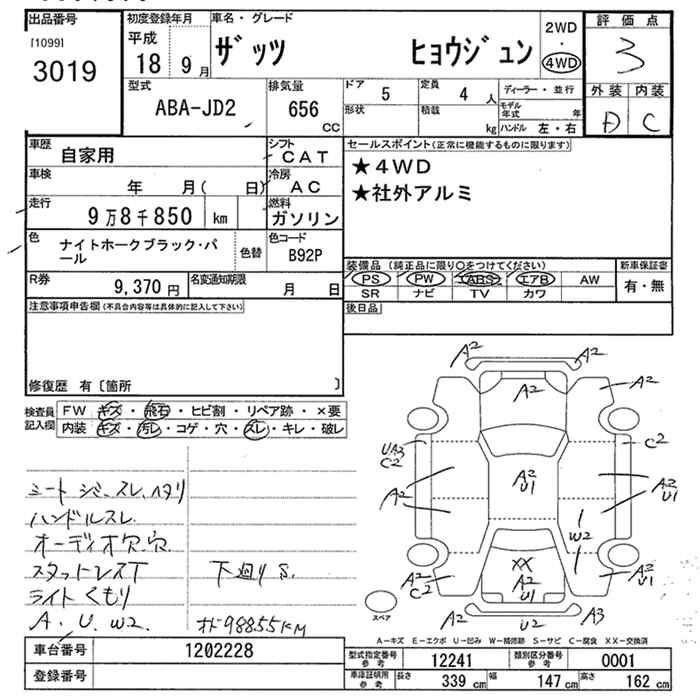 出品番号
[1099]
3019
初度登録年月
平成
18 9月
車名・グレード
ザッツ ヒョウジュン
2WD
・
4WD
評価点
3
外装 内装
D C
型式
ABA-JD2
排気量
656 CC
ドア 5
形状
定員 4人
積載 kg
ディーラー・並行
モデル年式 年
ハンドル 左・右
車歴
自家用
シフト
CAT
車検
年 月( 日)
冷房
AC
走行
9万8千850 km
燃料
ガソリン
色
ナイトホークブラック・パール
色替
色コード
B92P
R券
9,370円
名変通知期限
月 日
セールスポイント(正常に機能するものに限ります)
★4WD
★社外アルミ
装備品(純正品に限り○をつけてください)
PS PW ABS エアB AW
SR ナビ TV カワ
新車保証書
有・無
後日品
注意事項申告欄(不具合内容等は具体的に記入して下さい)
修復歴 有〔箇所 〕
検査員記入欄
FW キズ・飛石・ヒビ割・リペア跡・×要
内装 キズ・汚レ・コゲ・穴・スレ・キレ・破レ
シート シミ、スレ、ヘタリ
ハンドルスレ
オーディオ欠、穴
スタットレスT
ライトくもり
A. U. W2.
下廻り S.
オド98855KM
A2 A2
A2 A2
UA3 C2
C2
A2
A2 U1
A2 U1
W2
A2 C2
XX
A2 U1
A2 U1
A2 U2 A3
スペア
A-キズ E-エクボ U-凹み W-補修跡 S-サビ C-腐食 XX-交換済
車台番号
1202228
登録番号
型式指定番号 参考
12241
類別区分番号 参考
0001
車庫証明用 参考
長さ 339cm 幅 147cm 高さ 162cm